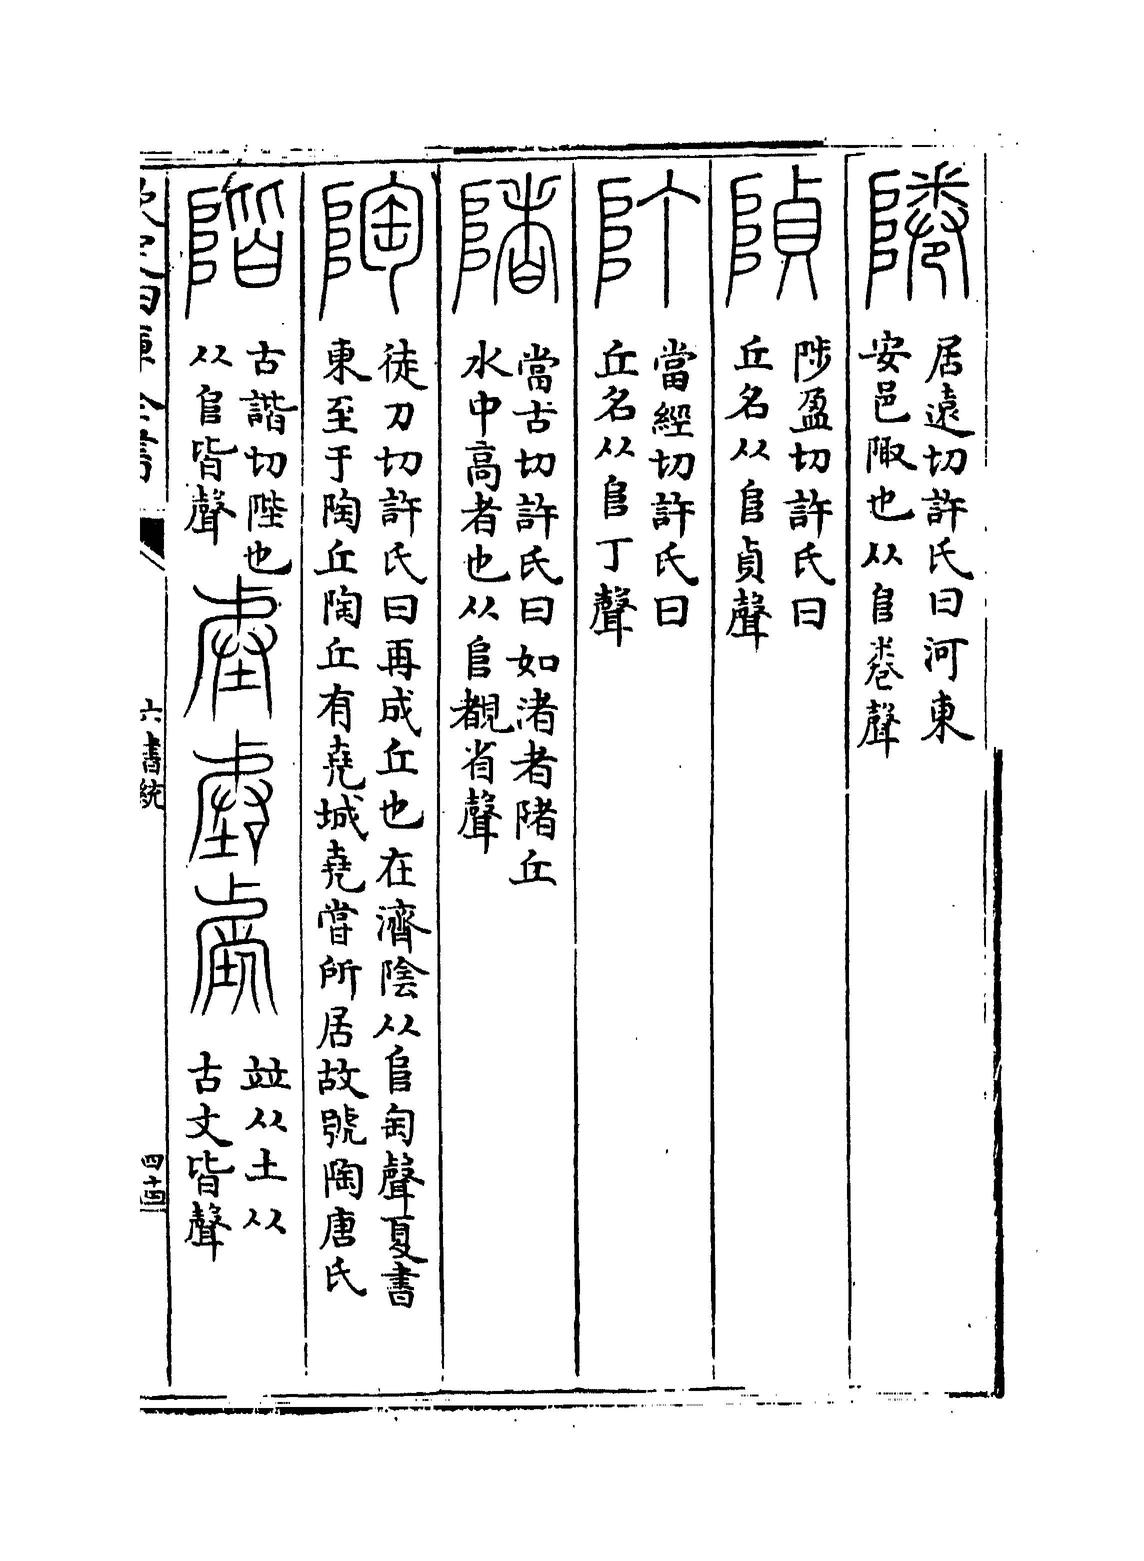 居遠切許氏曰河東
安邑陬也从𨸏卷聲
陟盈切許氏曰
丘名从𨸏貞聲
當經切許氏曰
丘名从𨸏丁聲
陼
當古切許氏曰如渚者陼丘
水中高者也从𨸏覩省聲
陶
徒刀切許氏曰再成丘也在濟陰从𨸏匋聲夏書
東至于陶丘陶丘有堯城堯嘗所居故號陶唐氏
階
古諧切陛也
从𨸏皆聲
竝从土从
古文皆聲
欽定四庫全書
六書統
四十四